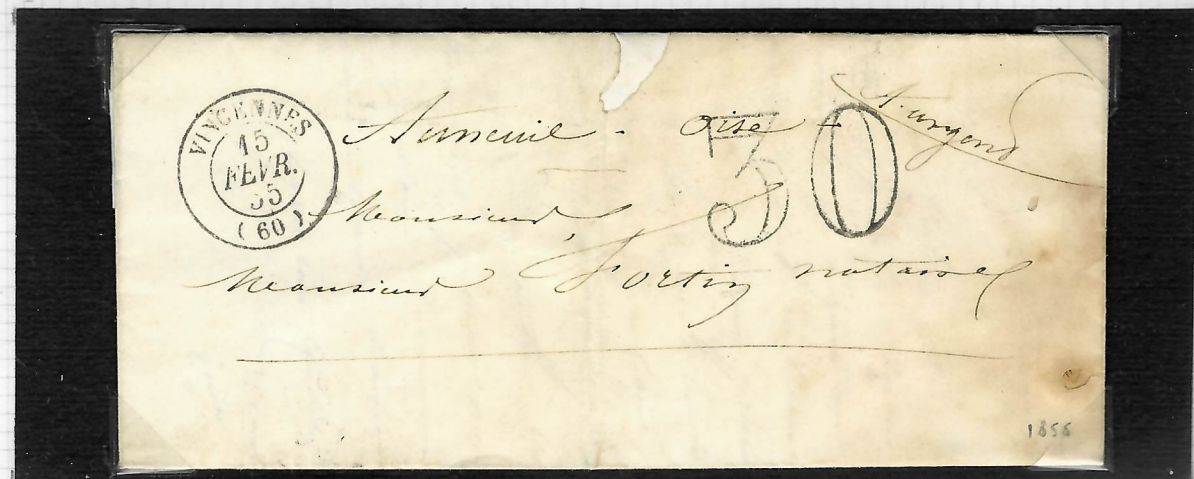 VINCENNES
15
FEVR.
55
(60)
Auneuil - oise - 
30
Monsieur,
Monsieur Fortin notaire
1856